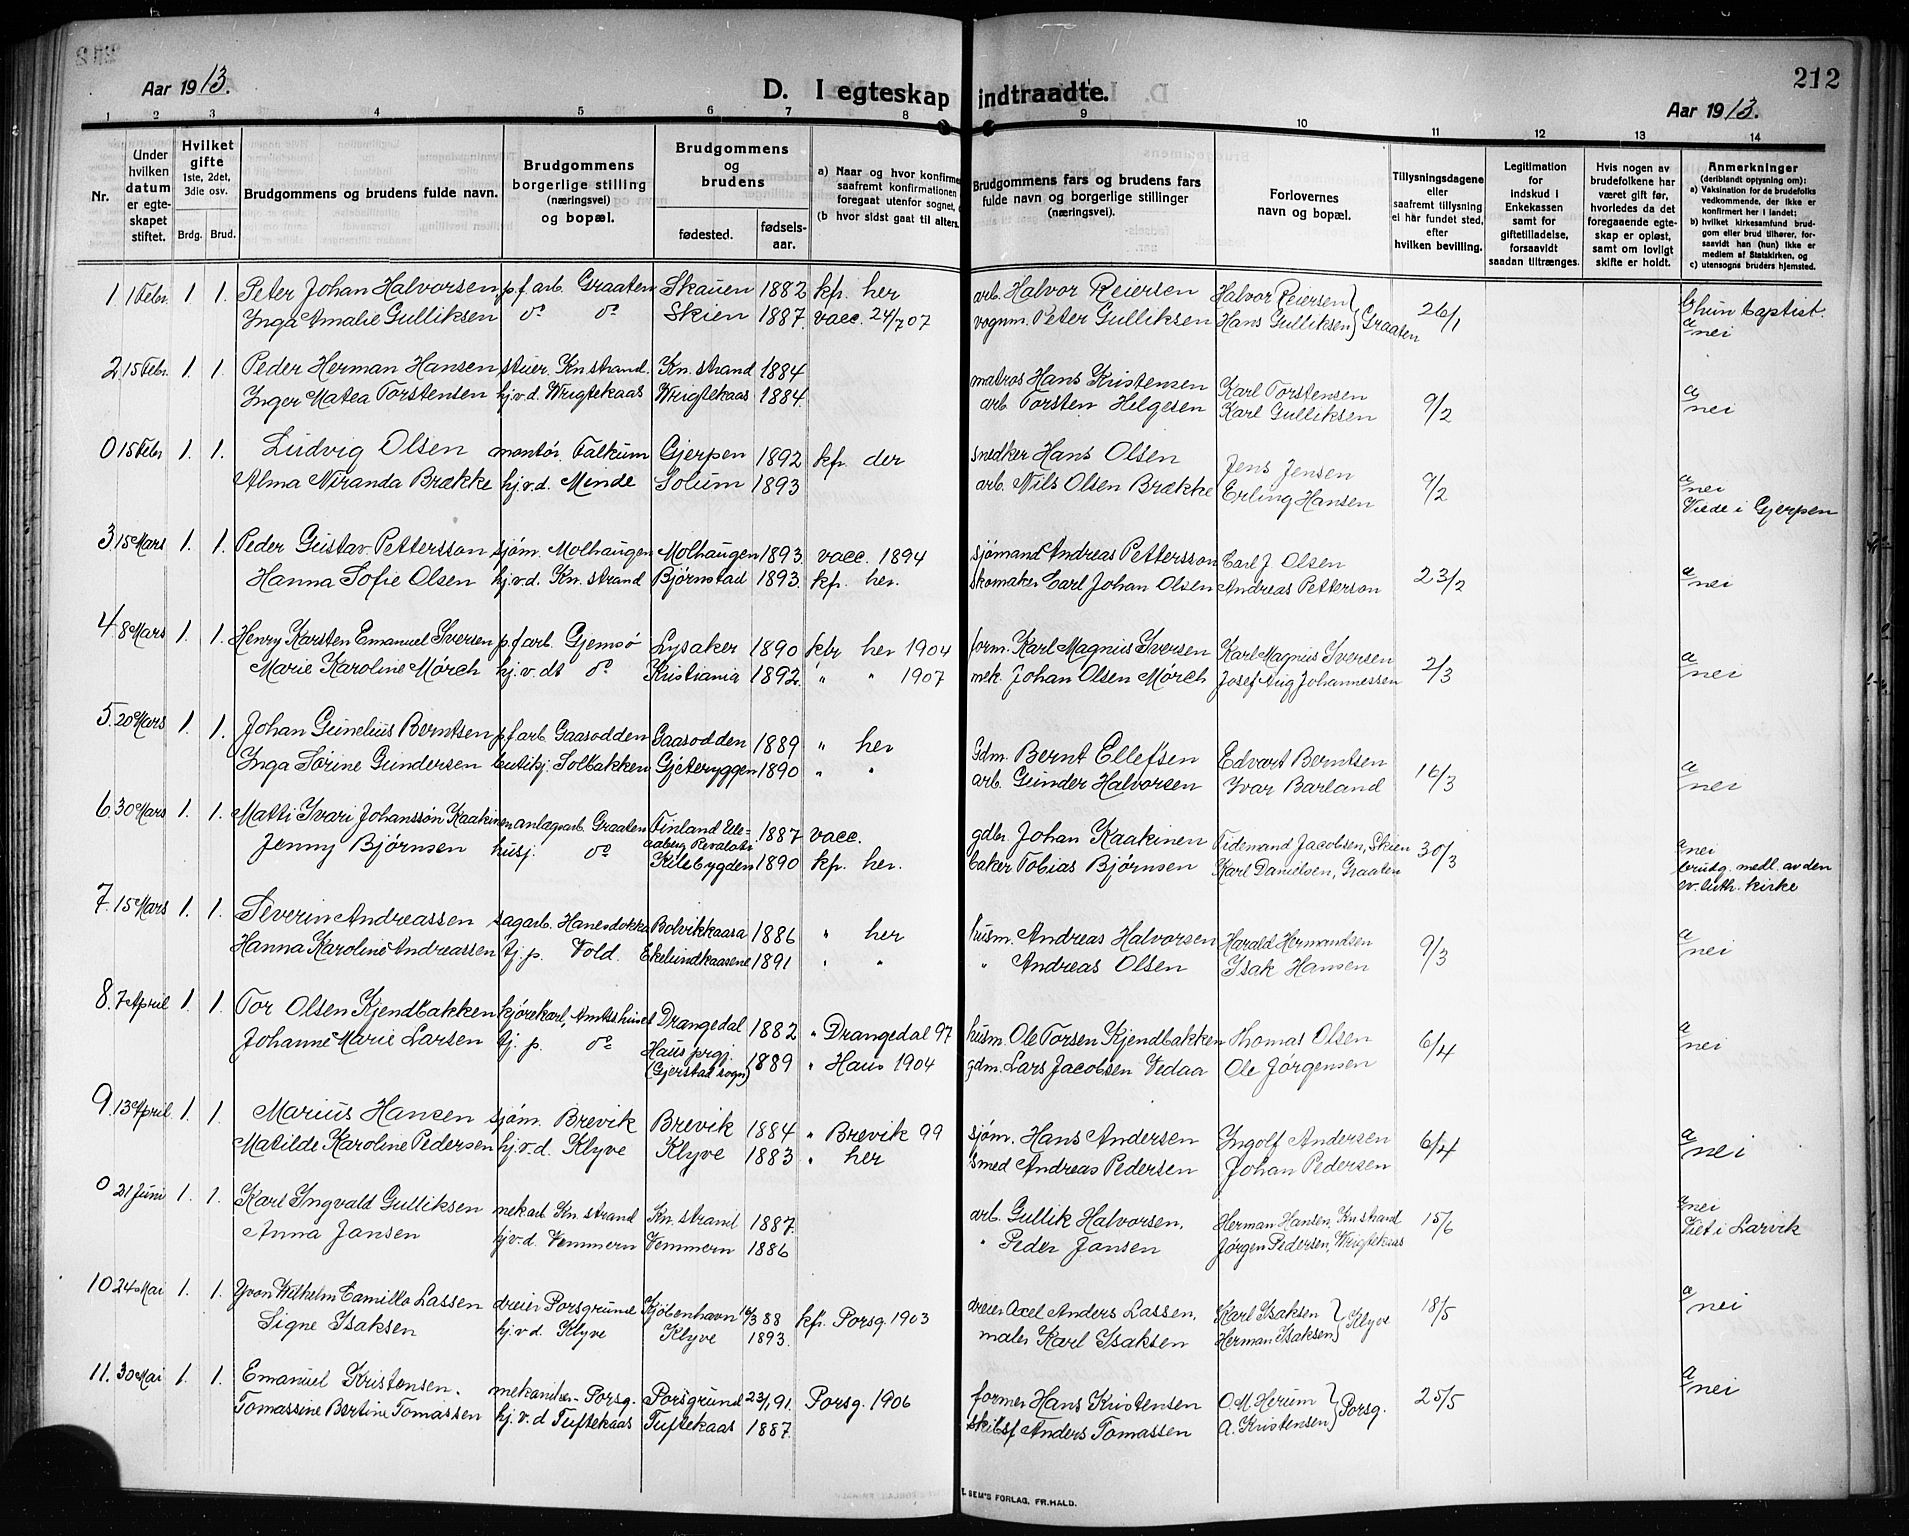 Aar 1913.
D. I egteskap indtraadte.
212
Aar 1913.
1 2 3 4 5 6 7 8 9 10 11 12 13 14
Nr.
Under hvilken datum er egte-skapet stiftet.
Hvilket gifte 1ste, 2det, 3die osv.
Brdg. Brud.
Brudgommens og brudens fulde navn.
Brudgommens borgerlige stilling (næringsvei) og bopæl.
Brudgommens og brudens
fødested.
fødsels-aar.
a) Naar og hvor konfirme
saafremt konfirmationen
foregaat utenfor sognet,
(b hvor sidst gaat til alters.
Brudgommens fars og brudens fars fulde navn og borgerlige stillinger (næringsvei).
Forlovernes navn og bopæl.
Tillysningsdagene eller saafremt tillysning ei hår fundet sted, efter hvilken bevilling.
Legitimation for indskud i Enkekassen samt for giftetilladelse, forsaavidt saadan tiltrænges.
Hvis nogen av brudefolkene har været gift før, hvorledes da det foregaaende egte-skap er opløst, samt om lovligt skifte er holdt.
Anmerkninger
(deriblandt oplysning om):
a) Vaksination for de brudefolks vedkommende, der ikke er konfirmert her i landet;
b) hvilket kirkesamfund brud-gom eller brud tilhører, for-saavidt han (hun) ikke er medlem af Statskirken, og
c) utensogns bruders hjemsted.
1 1 Febr. 1 1. Peter Johan Halvorsen p.f.arb. Graaten Skauen 1882 kfr. her arb. Halvor Reiersen Halvor Reiersen 26/1 b/hun baptist.
Inga Amalie Gulliksen do do Skien 1887. vacc. 24/7 07 vognm. Peter Gulliksen Hans Gulliksen } Graaten a/nei
2. 15 Febr. 1. 1. Peder Herman Hansen stuer. Kn.strand. Kn. strand 1884 matros Hans Kristensen Karl Torstensen
Inger Matea Torstensen hj.v.d. Wrigtekaas Wrigtekaas 1884. arb. Torsten Helgesen Karl Gulliksen 9/2 a/nei
0 15 Febr 1. 1. Ludvig Olsen montør. Falkum Gjerpen 1892 kfr. der snedker Hans Olsen Jens Jensen
Alma Miranda Brække hj.v.d. Minde Solum 1893 arb. Nils Olsen Brække Erling Hansen 9/2 a/nei
Viede i Gjerpen
3. 15 Mars 1. 1. Peder Gustav Pettersson sjøm. Molhaugen Molhaugen 1893. vacc. 1894 sjømand Andreas Pettersson Carl J. Olsen
Hanna Sofie Olsen hj.v.d. Kn. strand Bjørnstad 1893. kfr. her. Skomaker Carl Johan Olsen Andreas Petterson 23/2 a/nei
4. 8 Mars 1. 1. Henry Karsten Emanuel Iversen p.f.arb. Gjemsø Lysaker 1890 kfr her 1904 form. Karl Magnus Iversen Karl Magnus Iversen
Marie Karoline Mørch hj.v.ds do Kristiania 1892. " " 1907 mek. Johan Olsen Mørch Josef Aug Johannessen 2/3 a/nei
5. 20 Mars 1. 1. Johan Gunelius Berntsen p.f.arb. Gaasodden Gaasodden 1889 " her Gdm. Bernt Ellefsen Edvart Berntsen
Inga Sørine Gundersen butikj. Solbakken Gjeteryggen 1890 " " arb. Gunder Halvorsen Ivar Barland 16/3 a/nei
6. 30 Mars 1. 1. Matti Ivari Johanssøn Kaakinen anlægsarb. Graaten Finland 1887 vacc. gdbr Johan Kaakinen Tidemand Jacobsen, Skien
Jenny Bjørnsen husj. do Kilebygden 1890 kfr. her. baker Tobias Bjørnsen Karl Danielsen, Graaten 30/3 a/nei
brudg. medl. av den
ev. luth. kirke
7. 15 Mars 1. 1. Severin Andreassen sagarb. Hanesdokka Bolvikkaasa 1886 " her husm. Andreas Halvorsen Harald Hermandsen
Hanna Karoline Andreassen tj. p. Vold. Ekelundkaasene 1891 " " " Andreas Olsen Isak Hansen 9/3 a/nei
8. 7 April 1. 1. Tor Olsen Kjendbakken kjørekarl, Amtshuset Drangedal 1882 " Drangedal 97 husm. Ole Torsen Kjendbakken Thomas Olsen
Johanne Marie Larsen tj. p. do Haus prgj. (Gjerstad sogn) 1889 " Haus 1904 gdm. Lars Jacobsen Vedaa Ole Jørgensen 6/4 a/nei
9. 13 April. 1. 1. Marius Hansen sjøm. Brevik Brevik 1884 " Brevik 99 sjøm. Hans Andersen Ingolf Andersen
Matilde Karoline Pedersen hj.v.d. Klyve Klyve 1883 " her smed Andreas Pedersen Johan Pedersen 6/4 a/nei
0 21 Juni 1. 1. Karl Ingvald Gulliksen mekarb Kn. strand Kn. strand 1887. arb. Gullik Halvorsen, Herman Hansen, Kn strand 15/6 a/nei
Anna Jansen hj.v.d. Vemmern Vemmern 1886 " Peder Jansen Jørgen Pedersen, Wrigtekaas Viet i Larvik
10 24 Mai 1. 1. Yvon Wilhelm Camillo Lassen dreier Porsgrund Kjøbenhavn 16/3 88 kfr. Porsg. 1903 dreier Axel Anders Lassen, Karl Isaksen 18/5 a/nei
Signe Isaksen hj.v.d. Klyve Klyve 1893. maler Karl Isaksen Herman Isaksen } Klyve
11. 30 Mai 1. 1. Emanuel Kristensen. Porsg. Porsgrund 23/1 91. Porsg. 1906 former Hans Kristensen O.M. Herum 25/5 a/nei
Tomassine Bertine Tomassen hj.v.d Tuftekaas Tuftekaas 1887. skibsf Anders Tomassen A. Kristensen } Porsg.
SEM'S FORLAG, FR.HALD.